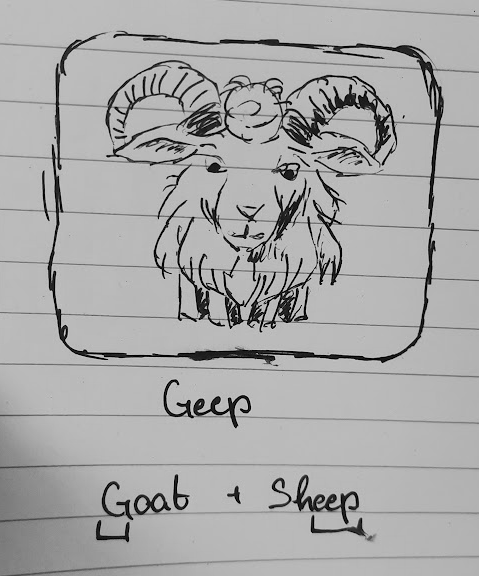 Geep
Goat + Sheep